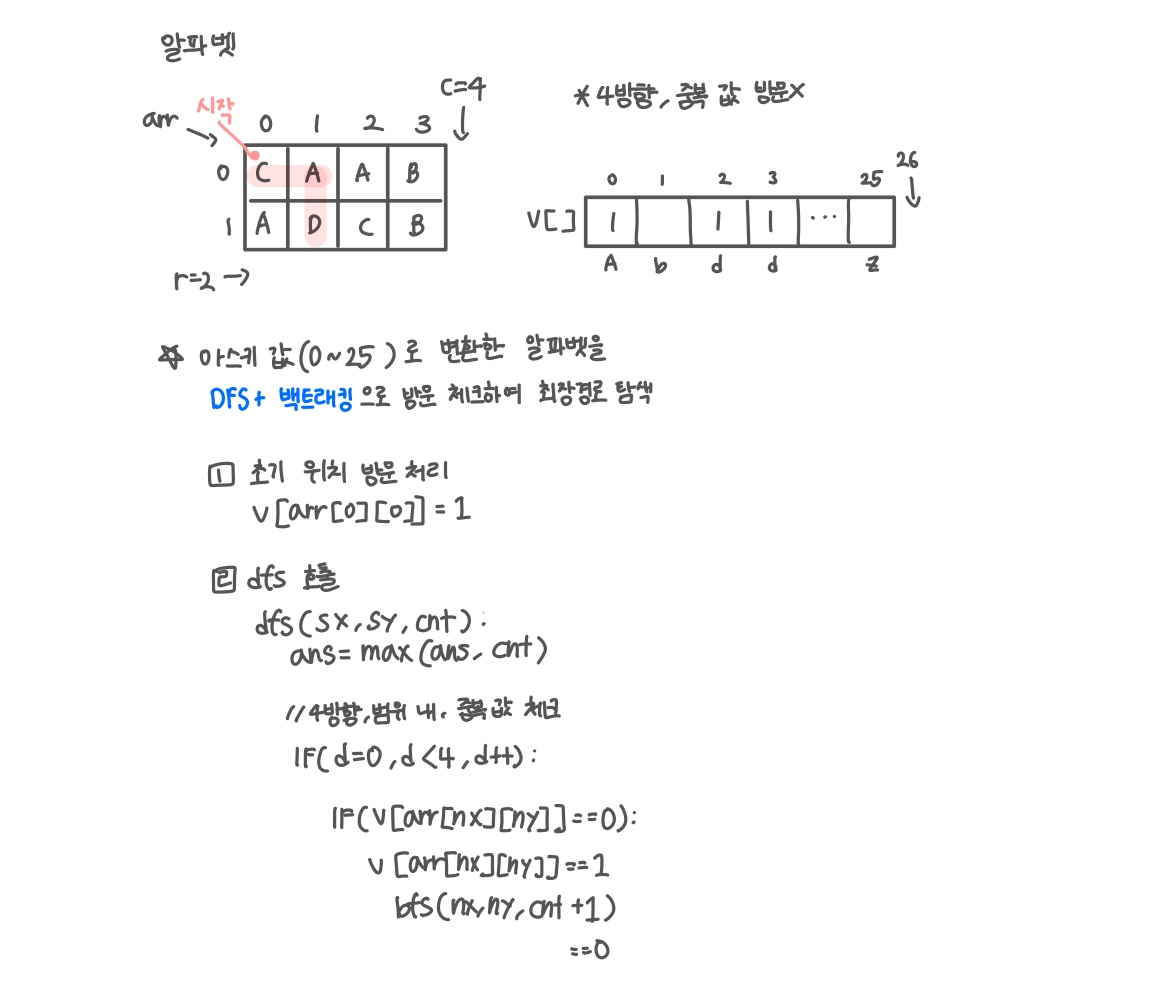 알파벳
C=4
*4방향, 중복 값 방문X
arr
시작
0 1 2 3
0 C A A B
1 A D C B
r=2 →
26
0 1 2 3 25
V[] 1 1 1 ...
A b d d z
☆ 아스키 값(0~25)로 변환한 알파벳을
DFS+ 백트래킹으로 방문 체크하여 최장경로 탐색
1 초기 위치 방문 처리
v[arr[0][0]] = 1
2 dfs 호출
dfs(sx,sy,cnt):
ans= max(ans, cnt)
//4방향,범위 내. 중복값 체크
IF(d=0,d<4,d++):
IF(V[arr[nx][ny]]==0):
v[arr[nx][ny]]==1
bfs(nx,ny,cnt+1)
==0